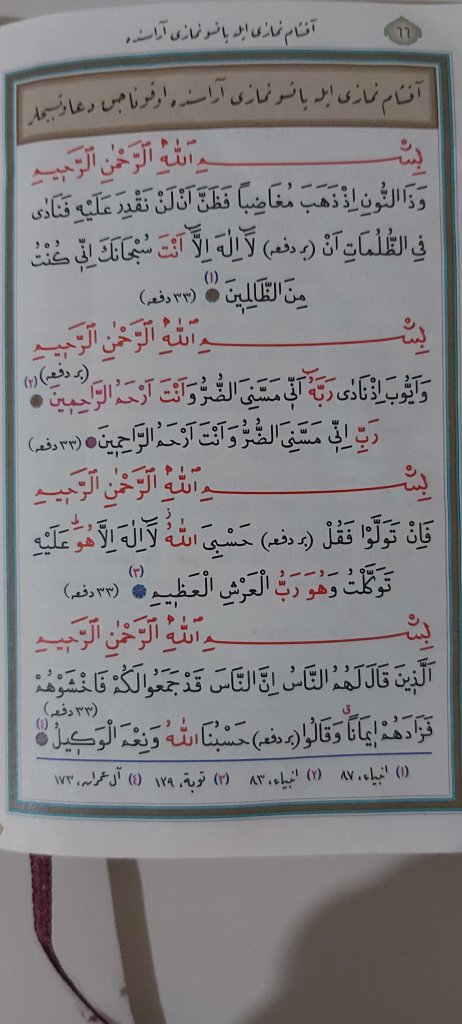 ٦٦
آقشام نمازى ايله ياتسو نمازى آراسنده
آقشام نمازى ايله ياتسو نمازى آراسنده اوقوناجق دعا وتسبيحلر
بِسْمِ اللّٰهِ الرَّحْمٰنِ الرَّحٖيمِ
وَذَا النُّونِ اِذْ ذَهَبَ مُغَاضِباً فَظَنَّ اَنْ لَنْ نَقْدِرَ عَلَيْهِ فَنَادٰى
فِى الظُّلُمَاتِ اَنْ (بر دفعه) لَا اِلٰهَ اِلَّا اَنْتَ سُبْحَانَكَ اِنّٖى كُنْتُ
مِنَ الظَّالِمٖينَ (١) (٣٣ دفعه)
بِسْمِ اللّٰهِ الرَّحْمٰنِ الرَّحٖيمِ
وَاَيُّوبَ اِذْ نَادٰى رَبَّهُ اَنّٖى مَسَّنِىَ الضُّرُّ وَاَنْتَ اَرْحَمُ الرَّاحِمٖينَ (بر دفعه) (٢)
رَبِّ اِنّٖى مَسَّنِىَ الضُّرُّ وَاَنْتَ اَرْحَمُ الرَّاحِمٖينَ (٣٣ دفعه)
بِسْمِ اللّٰهِ الرَّحْمٰنِ الرَّحٖيمِ
فَاِنْ تَوَلَّوْا فَقُلْ (بر دفعه) حَسْبِىَ اللّٰهُ لَا اِلٰهَ اِلَّا هُوَ عَلَيْهِ
تَوَكَّلْتُ وَهُوَ رَبُّ الْعَرْشِ الْعَظٖيمِ (٣) (٣٣ دفعه)
بِسْمِ اللّٰهِ الرَّحْمٰنِ الرَّحٖيمِ
اَلَّذٖينَ قَالَ لَهُمُ النَّاسُ اِنَّ النَّاسَ قَدْ جَمَعُوا لَكُمْ فَاخْشَوْهُمْ
فَزَادَهُمْ اٖيمَاناً وَقَالُوا (بر دفعه) حَسْبُنَا اللّٰهُ وَنِعْمَ الْوَكٖيلُ (٣٣ دفعه) (٤)
(١) انبياء، ٨٧ (٢) انبياء، ٨٣ (٣) توبة، ١٢٩ (٤) آل عمران، ١٧٣